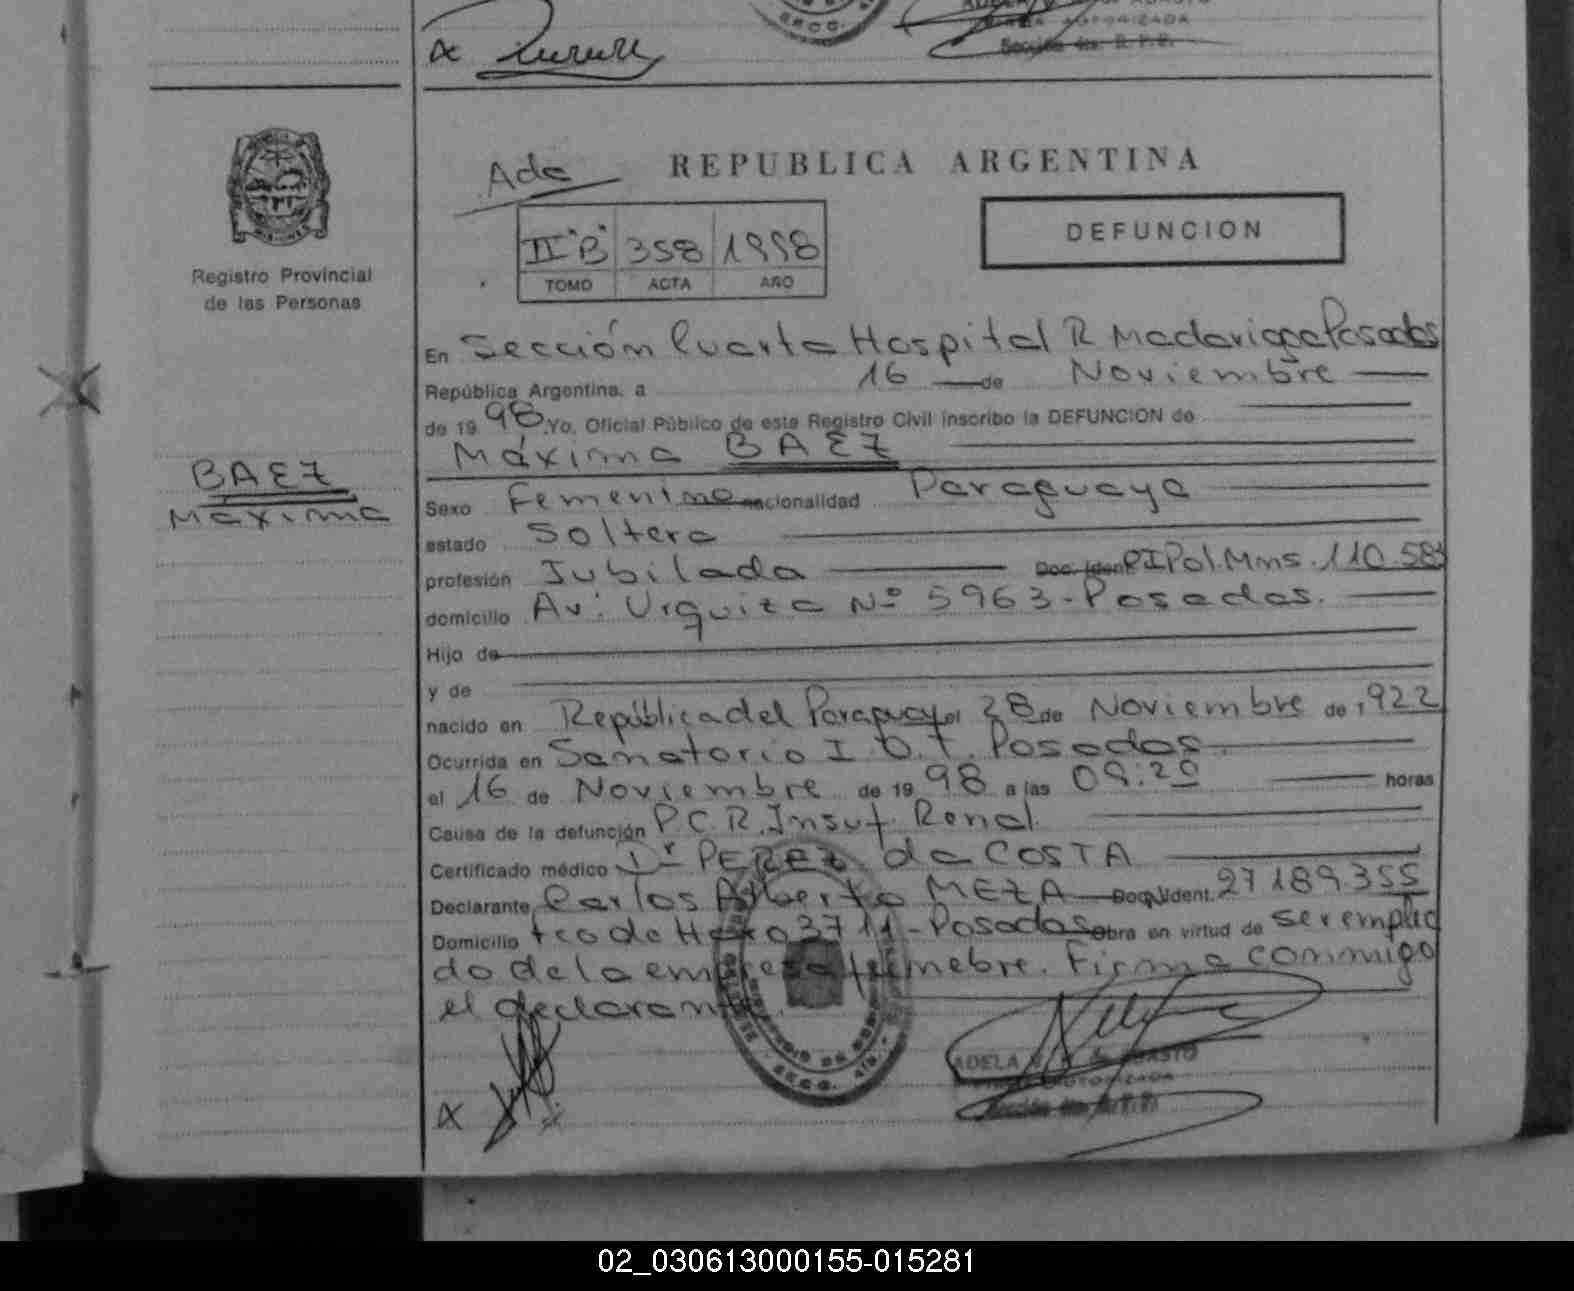 REPUBLICA ARGENTINA
DEFUNCION
II "B" 358 1998
TOMO ACTA AÑO
Registro Provincial
de las Personas
En Sección Cuarta Hospital R Madariaga Posadas
República Argentina, a 16 de Noviembre
de 1998 Yo, Oficial Público de este Registro Civil inscribo la DEFUNCION de
Máxima BAEZ
BAEZ
Máxima
Sexo Femenino nacionalidad Paraguaya
estado Soltera
profesión Jubilada Doc. Iden. CI Pol. Mnes. 110.583
domicilio Av. Urquiza Nº 5963 - Posadas.
Hijo de
y de
nacido en República del Paraguay el 28 de Noviembre de 1922
Ocurrida en Sanatorio I.O.T. Posadas.
el 16 de Noviembre de 1998 a las 09:20 horas
Causa de la defunción P.C.R. Insuf. Renal.
Certificado médico Dr PEREZ da COSTA
Declarante Carlos Alberto MEZA Doc. Ident. 27189355
Domicilio Fco de Haro 3711 - Posadas Obra en virtud de ser emplea
do de la empresa fúnebre. Firma conmigo
el declarante.
ADELA
AUTORIZADA
02_030613000155-015281